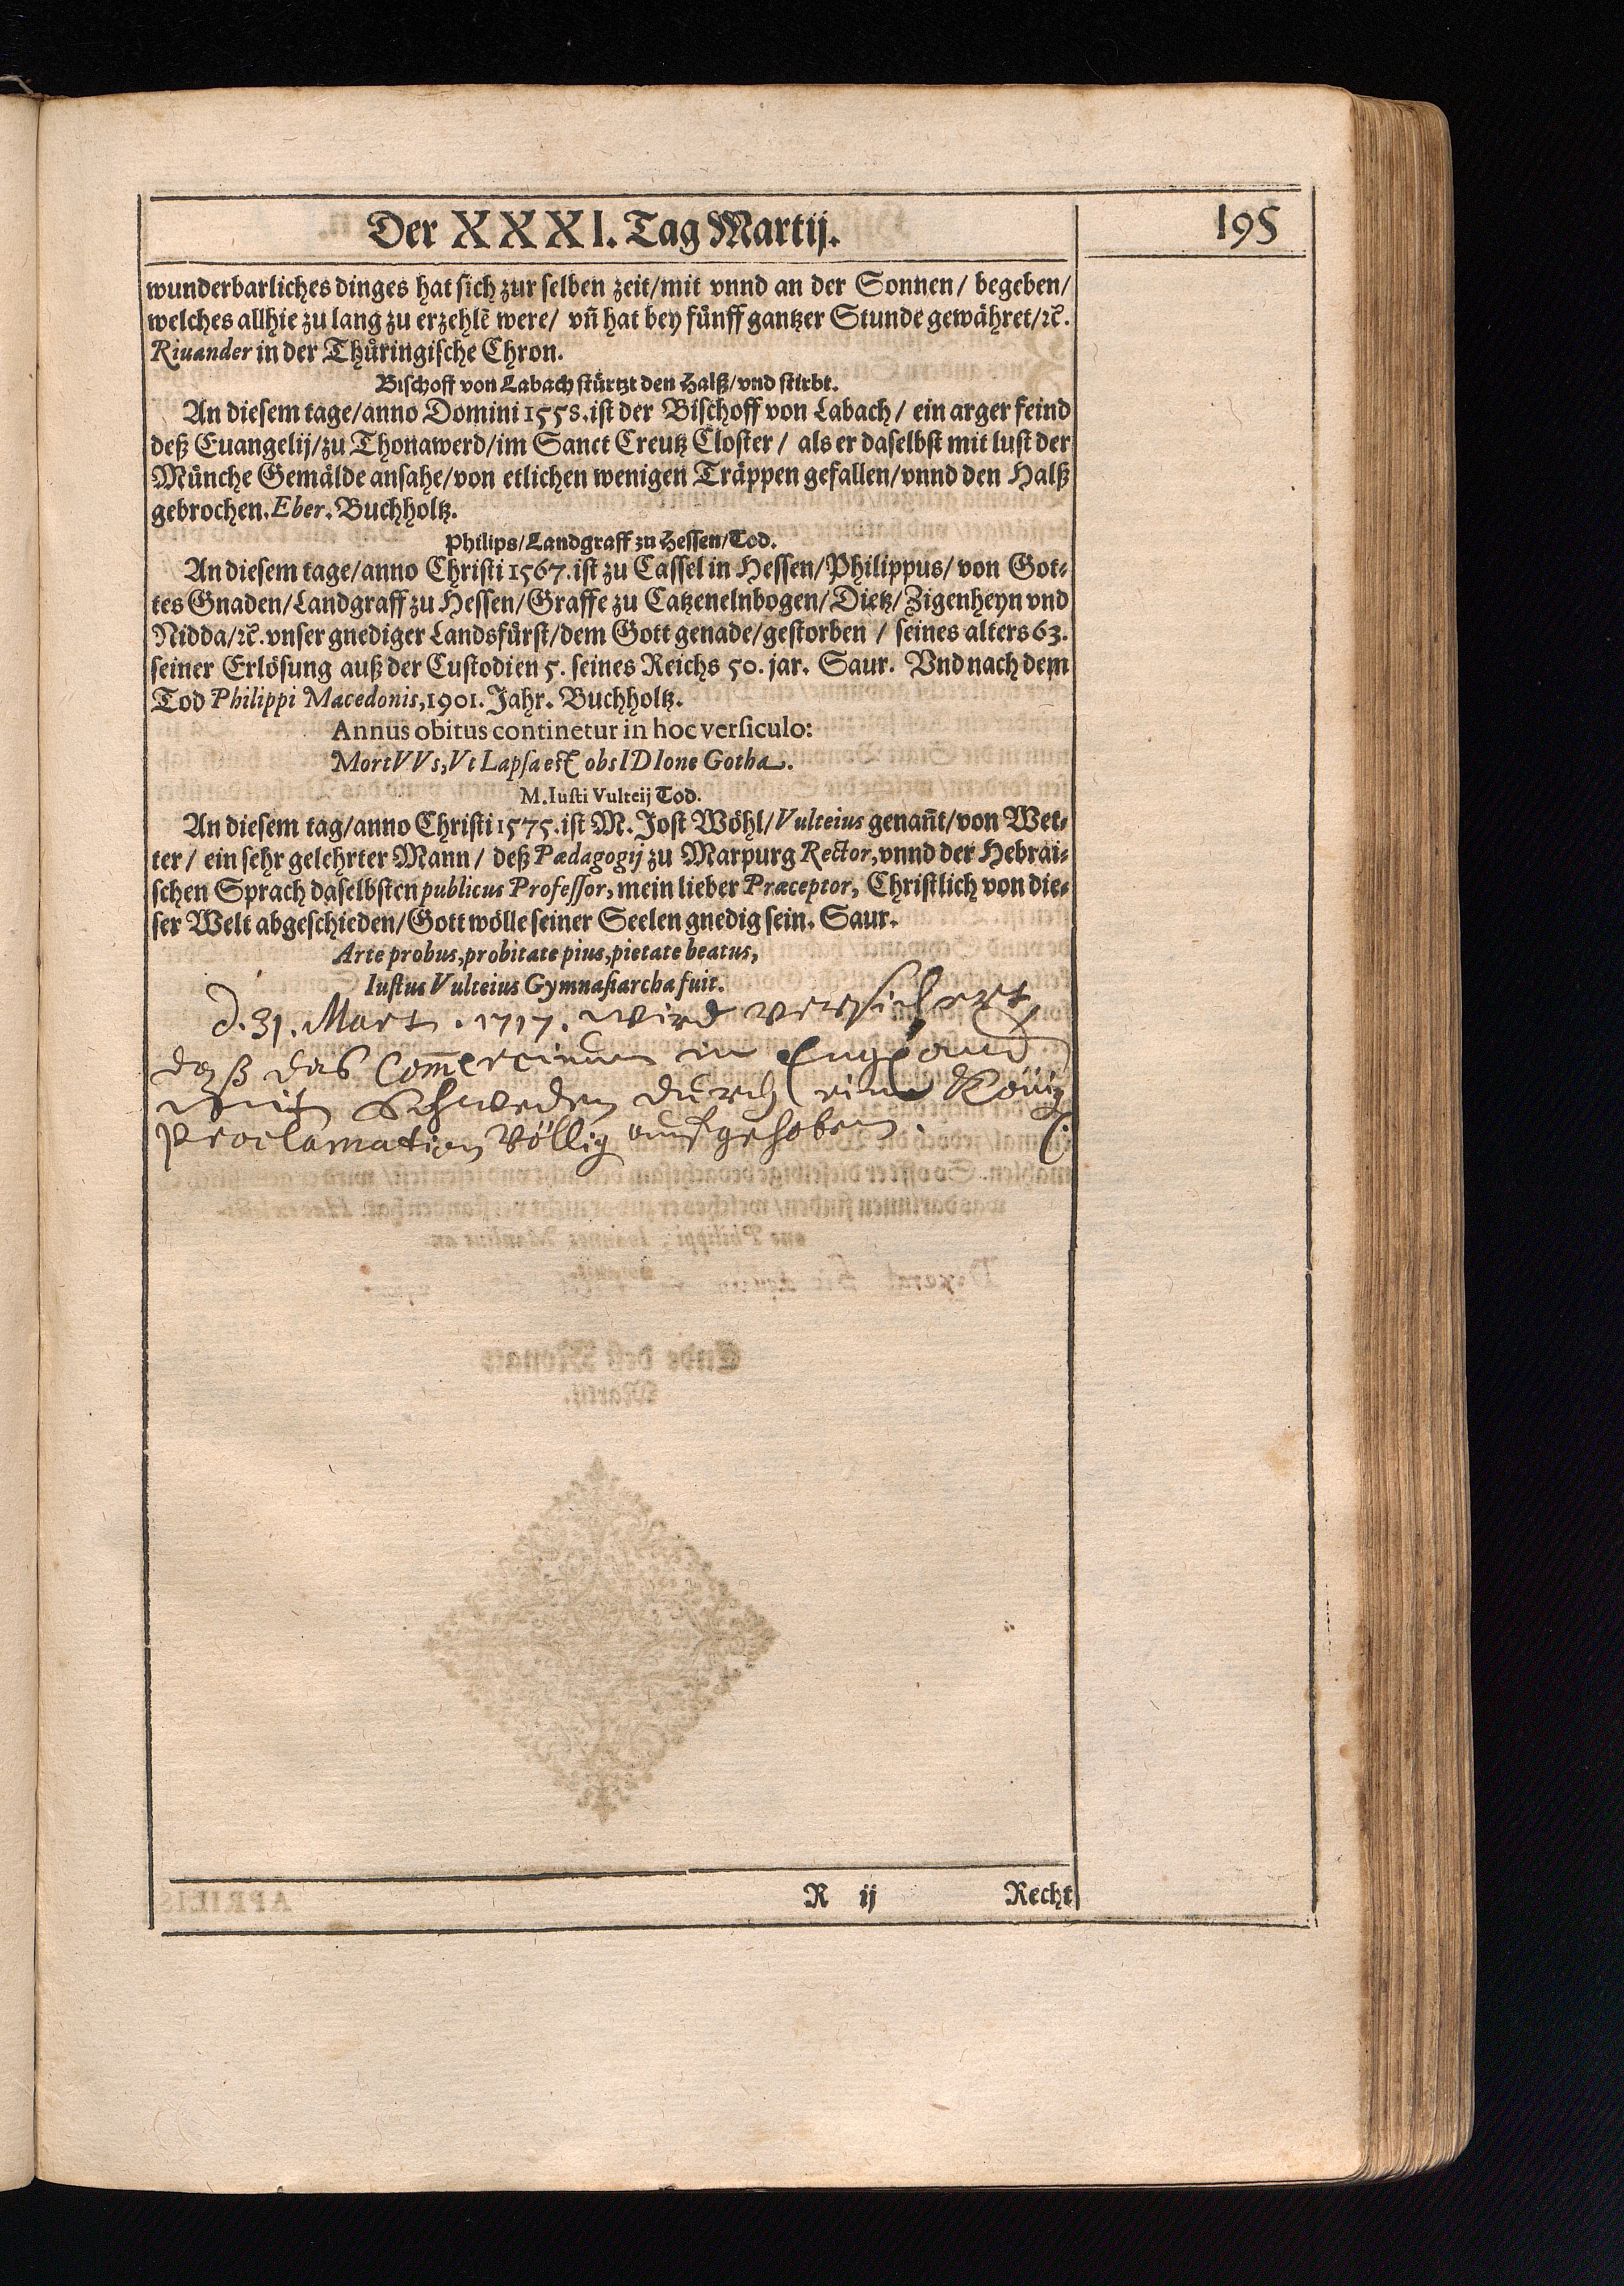 Der XXXI. Tag Martij.
195
wunderbarliches dinges hat sich zur selben zeit/mit vnnd an der Sonnen/ begeben/
welches allhie zu lang zu erzehlẽ were/ vñ hat bey fünff gantzer Stunde gewähret/ꝛc̃.
Riuander in der Thüringische Chron.
Bischoff von Labach stürtzt den Halß/vnd stirbt.
An diesem tage/anno Domini 1558. ist der Bischoff von Labach/ ein arger feind
deß Euangelij/zu Thonawerd/im Sanct Creutz Closter/ als er daselbst mit lust der
Münche Gemälde ansahe/von etlichen wenigen Träppen gefallen/vnnd den Halß
gebrochen. Eber. Buchholtz.
Philips/Landgraff zu Hessen/Tod.
An diesem tage/anno Christi 1567. ist zu Cassel in Hessen/Philippus/von Got-
tes Gnaden/Landgraff zu Hessen/Graffe zu Catzenelnbogen/Dietz/Zigenheyn vnd
Nidda/ꝛc̃. vnser gnediger Landsfürst/dem Gott genade/gestorben/ seines alters 63.
seiner Erlösung auß der Custodien 5. seines Reichs 50. jar. Saur. Vnd nach dem
Tod Philippi Macedonis, 1901. Jahr. Buchholtz.
Annus obitus continetur in hoc versiculo:
MortVVs, Vt Lapsa est obsIDIone Gotha.
M. Iusti Vulteij Tod.
An diesem tag/anno Christi 1575. ist M. Jost Wöhl/Vulteius genañt/von Wet-
ter/ ein sehr gelehrter Mann/ deß Pædagogij zu Marpurg Rector, vnnd der Hebrai-
schen Sprach daselbsten publicus Professor, mein lieber Præceptor, Christlich von die-
ser Welt abgeschieden/Gott wölle seiner Seelen gnedig sein. Saur.
Arte probus, probitate pius, pietate beatus,
Iustus Vulteius Gymnasiarcha fuit.
d. 31. Mart. 1717. wird versichert,
daß das Com̃ercium in Engeland
mit Schweden durch eine König
Proclamation völlig aufgehoben.
R ij
Recht